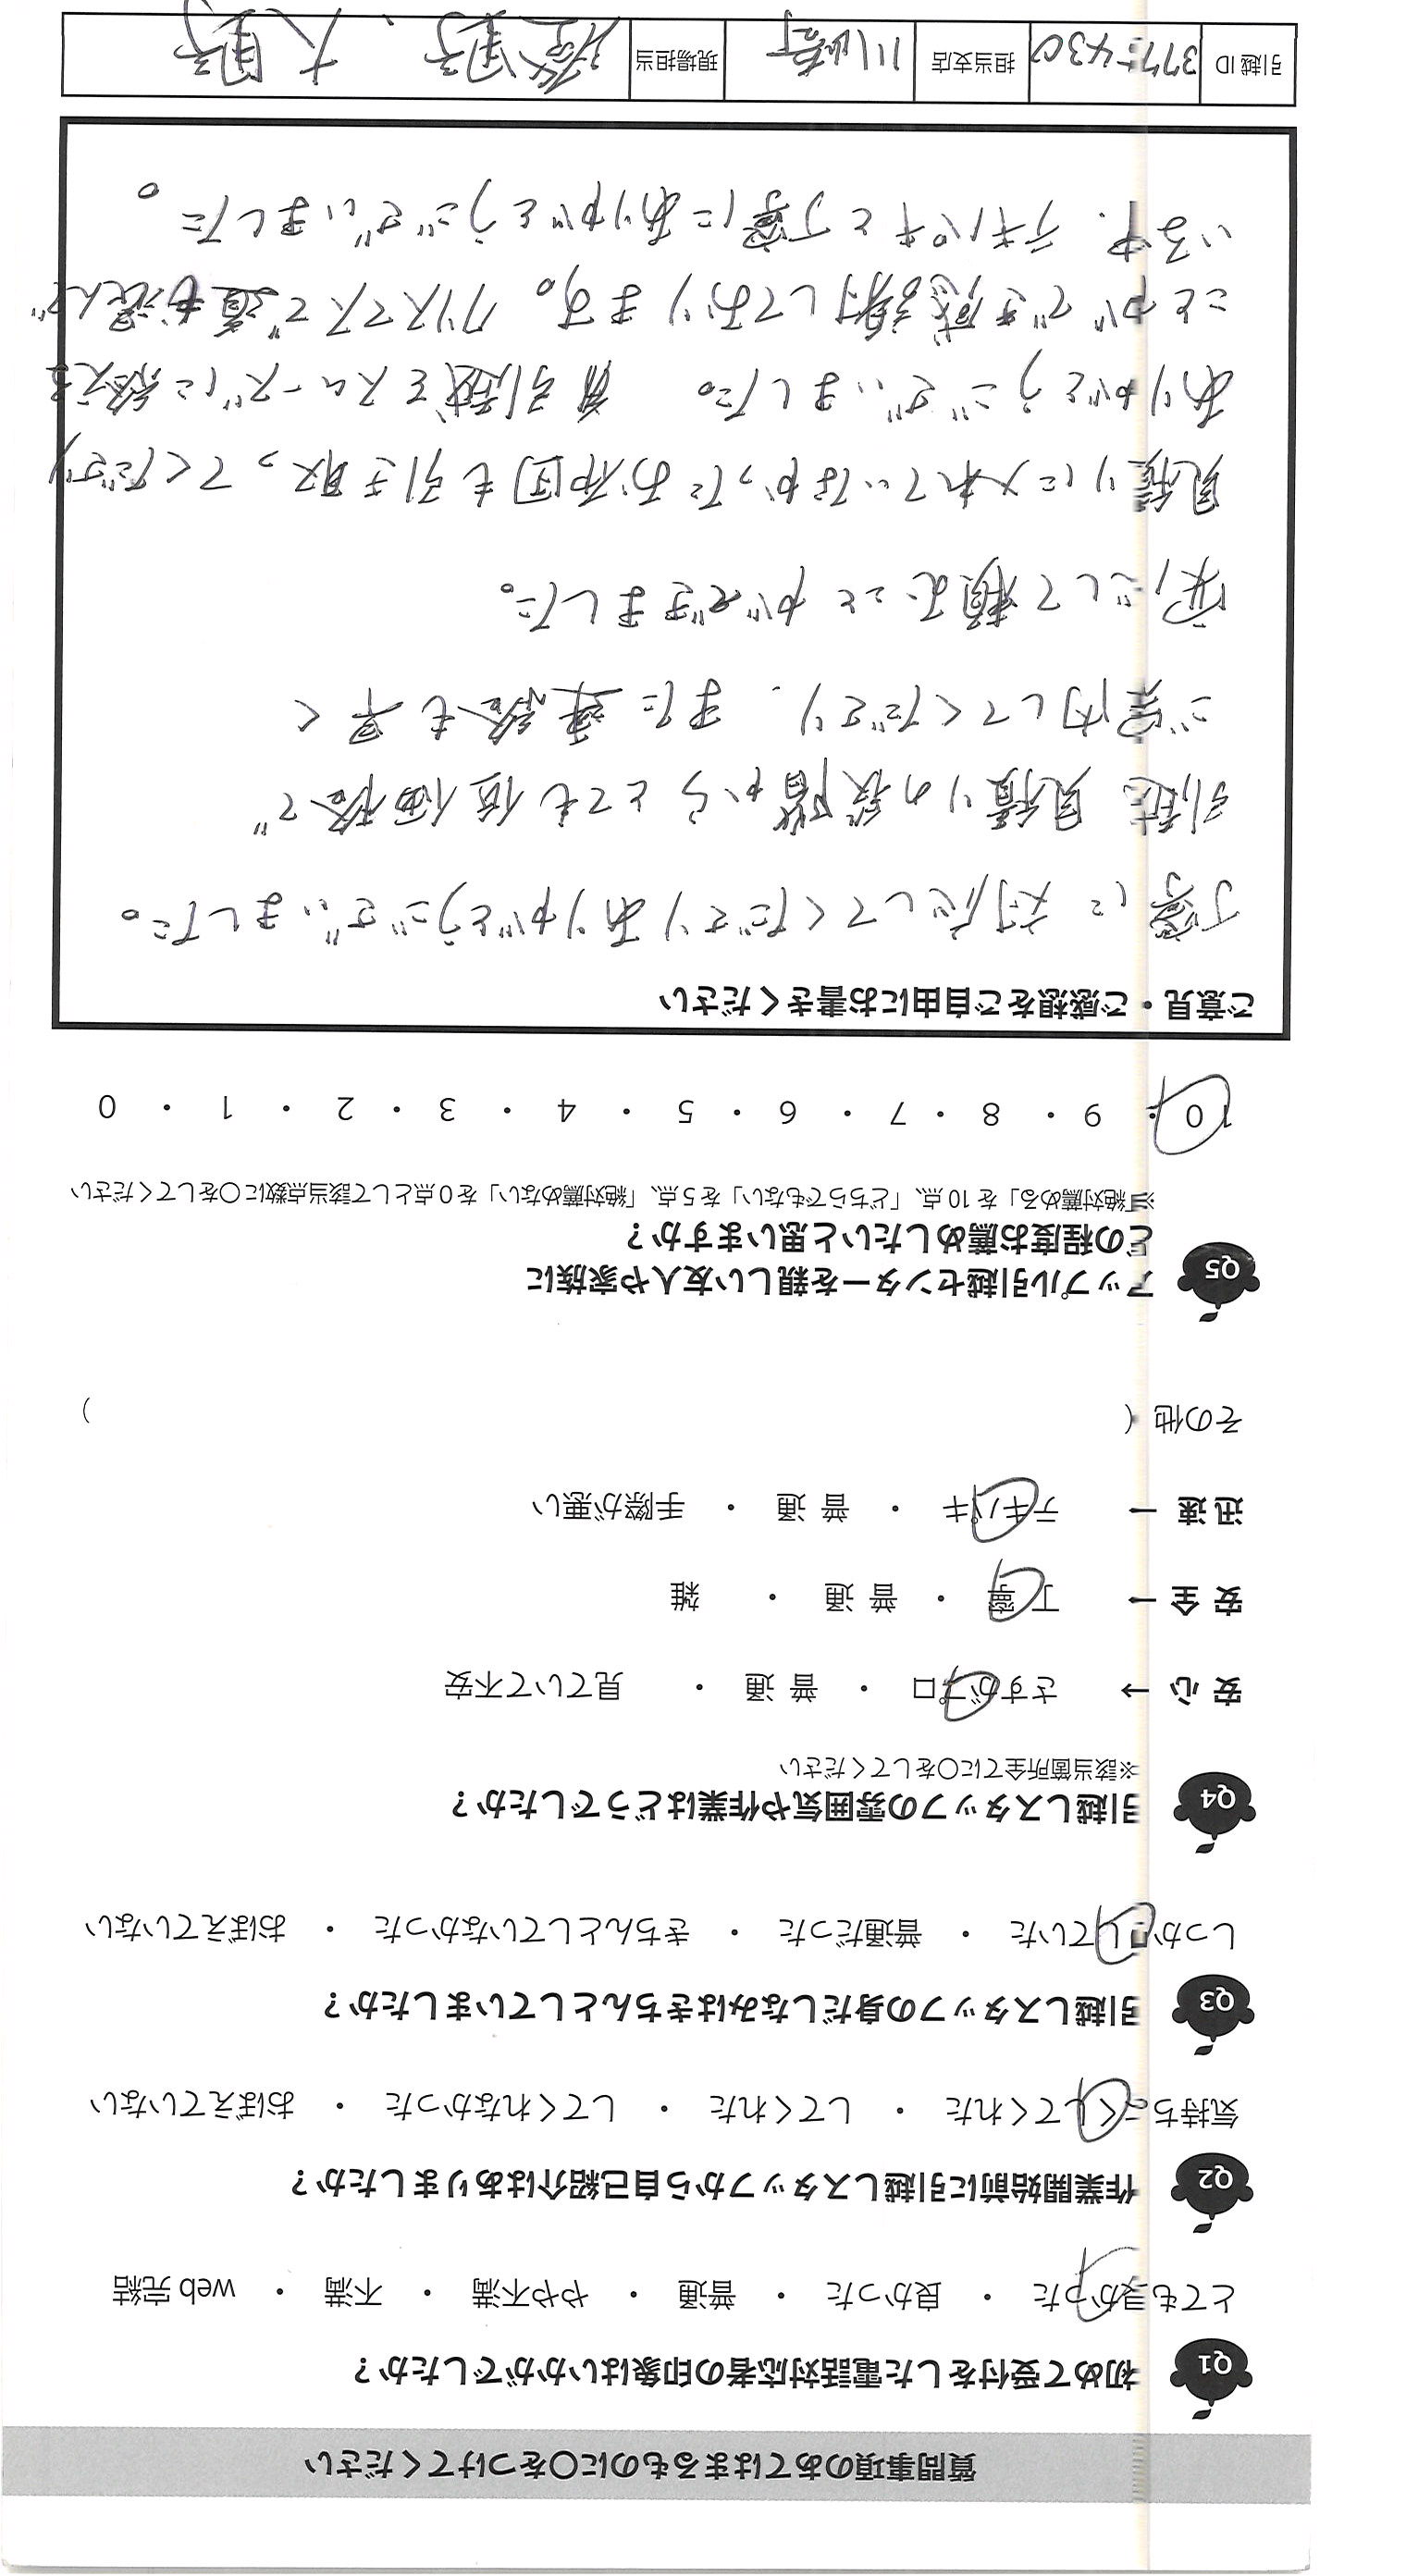 質問事項のあてはまるものに○をつけてください
Q1 初めて受付をした電話対応者の印象はいかがでしたか？
とても良かった ・ 良かった ・ 普通 ・ やや不満 ・ 不満 ・ web 完結
Q2 作業開始前に引越しスタッフから自己紹介はありましたか？
気持ちよくしてくれた ・ してくれた ・ してくれなかった ・ おぼえていない
Q3 引越しスタッフの身だしなみはきちんとしていましたか？
しっかりしていた ・ 普通だった ・ きちんとしていなかった ・ おぼえていない
Q4 引越しスタッフの雰囲気や作業はどうでしたか？
※該当箇所全てに○をしてください
安心 → さすがプロ ・ 普通 ・ 見ていて不安
安全 → 丁寧 ・ 普通 ・ 雑
迅速 → テキパキ ・ 普通 ・ 手際が悪い
その他（ ）
Q5 アップル引越センターを親しい友人や家族に
どの程度お薦めしたいと思いますか？
※「絶対薦める」を 10 点、「どちらでもない」を 5 点、「絶対薦めない」を 0 点として該当点数に○をしてください
10 ・ 9 ・ 8 ・ 7 ・ 6 ・ 5 ・ 4 ・ 3 ・ 2 ・ 1 ・ 0
ご意見・ご感想をご自由にお書きください
丁寧に対応してくださりありがとうございました。
引越見積りの段階からとても低価格で
ご案内してくださり、また連絡も早く
安心して頼むことができました。
見積りに入れていなかったお布団も引き取ってくださり
ありがとうございました。 引越をスムーズに終える
ことができ感謝しております。クリスマスで道も混んで
いる中、テキパキと丁寧にありがとうございました。
引越 ID 3775430 担当支店 川崎 現場担当 大野